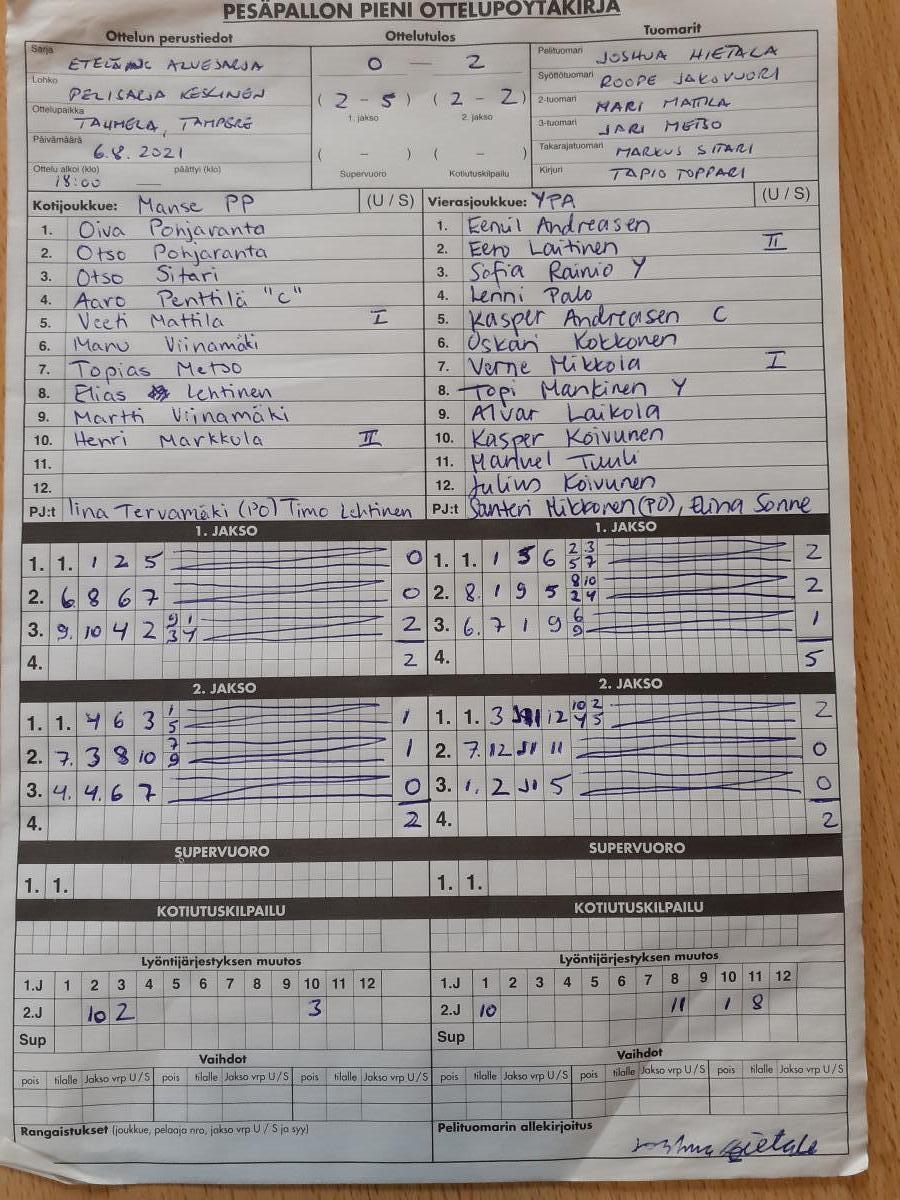 PESÄPALLON PIENI OTTELUPÖYTÄKIRJA
Ottelun perustiedot Ottelutulos Tuomarit
Sarja ETELÄINEN ALUESARJA
Lohko PELISARJA KESKINEN
Ottelupaikka TAHMELA, TAMPERE
Päivämäärä 6.8. 2021
Ottelu alkoi (klo) päättyi (klo)
18:00 —
0 — 2
( 2 - 5 ) ( 2 - 2 )
1. jakso 2. jakso
( - ) ( - )
Supervuoro Kotiutuskilpailu
Pelituomari JOSHUA HIETALA
Syöttötuomari ROOPE JAKOVUORI
2-tuomari MARI MATTILA
3-tuomari JARI METSO
Takarajatuomari MARKUS SITARI
Kirjuri TAPIO TOPPARI
Kotijoukkue: Manse PP (U / S)
1. Oiva Pohjaranta
2. Otso Pohjaranta
3. Otso Sitari
4. Aaro Penttilä "C"
5. Veeti Mattila I
6. Manu Viinamäki
7. Topias Metso
8. Elias Lehtinen
9. Martti Viinamäki
10. Henri Markkula II
11.
12.
PJ:t Iina Tervamäki (PO) Timo Lehtinen
Vierasjoukkue: YPA (U / S)
1. Eemil Andreasen
2. Eero Laitinen II
3. Sofia Rainio Y
4. Lenni Palo
5. Kasper Andreasen C
6. Oskari Kokkonen
7. Verne Mikkola I
8. Topi Mankinen Y
9. Alvar Laikola
10. Kasper Koivunen
11. Manuel Tuuli
12. Julius Koivunen
PJ:t Santeri Mikkonen (PO), Elina Sonne
1. JAKSO
1. 1. 1 2 5 0
2. 6. 8 6 7 0
3. 9. 10 4 2 9 1 3 4 2
4. 2
1. JAKSO
1. 1. 1 5 6 2 3 5 7 2
2. 8. 1 9 5 8 10 2 4 2
3. 6. 7 1 9 6 9 1
4. 5
2. JAKSO
1. 1. 4 6 3 1 5 1
2. 7. 3 8 10 7 9 1
3. 4. 4 6 7 0
4. 2
2. JAKSO
1. 1. 3 12 10 2 4 5 2
2. 7. 12 11 0
3. 1. 2 5 0
4. 2
SUPERVUORO SUPERVUORO
1. 1. 1. 1.
KOTIUTUSKILPAILU KOTIUTUSKILPAILU
Lyöntijärjestyksen muutos
1.J 1 2 3 4 5 6 7 8 9 10 11 12
2.J 10 2 3
Sup
Lyöntijärjestyksen muutos
1.J 1 2 3 4 5 6 7 8 9 10 11 12
2.J 10 11 1 8
Sup
Vaihdot Vaihdot
pois tilalle Jakso vrp U / S pois tilalle Jakso vrp U / S pois tilalle Jakso vrp U / S
pois tilalle Jakso vrp U / S pois tilalle Jakso vrp U / S pois tilalle Jakso vrp U / S
Rangaistukset (joukkue, pelaaja nro, jakso vrp U / S ja syy)
Pelituomarin allekirjoitus
Joshua Hietala